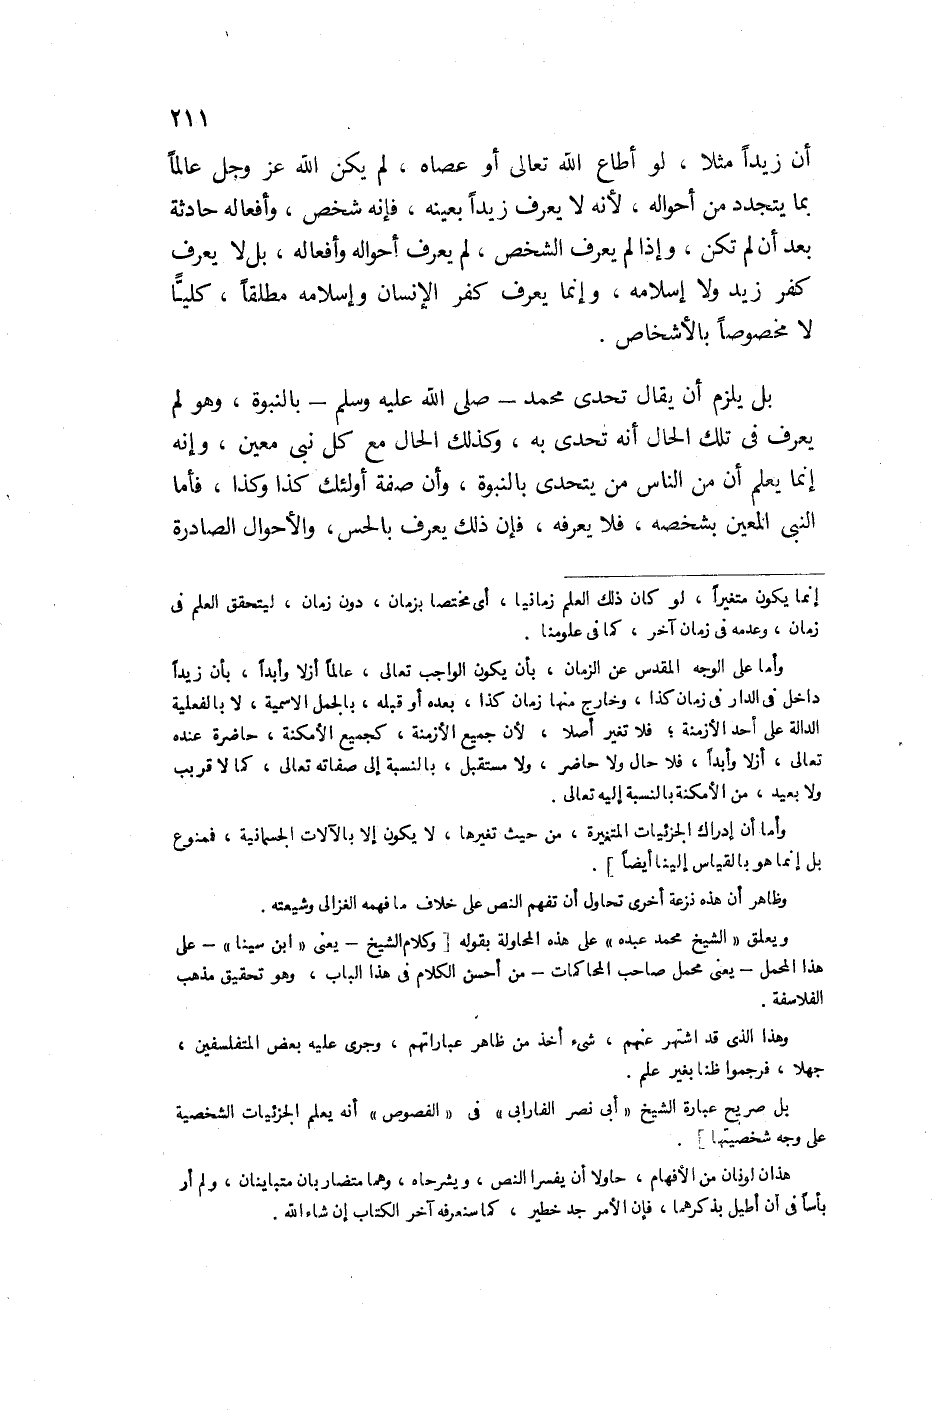 ٢١١
أن زيداً مثلا ، لو أطاع الله تعالى أو عصاه ، لم يكن الله عز وجل عالماً
بما يتجدد من أحواله ، لأنه لا يعرف زيداً بعينه ، فإنه شخص ، وأفعاله حادثة
بعد أن لم تكن ، وإذا لم يعرف الشخص ، لم يعرف أحواله وأفعاله ، بل لا يعرف
كفر زيد ولا إسلامه ، وإنما يعرف كفر الإنسان وإسلامه مطلقاً ، كليًّا
لا مخصوصاً بالأشخاص .
بل يلزم أن يقال تحدى محمد – صلى الله عليه وسلم – بالنبوة ، وهو لم
يعرف فى تلك الحال أنه تحدى به ، وكذلك الحال مع كل نبى معين ، وإنه
إنما يعلم أن من الناس من يتحدى بالنبوة ، وأن صفة أولئك كذا وكذا ، فأما
النبى المعين بشخصه ، فلا يعرفه ، فإن ذلك يعرف بالحس، والأحوال الصادرة
إنما يكون متغيراً ، لو كان ذلك العلم زمانيا ، أى مختصا بزمان ، دون زمان ، ليتحقق العلم فى
زمان ، وعدمه فى زمان آخر ، كما فى علومنا .
وأما على الوجه المقدس عن الزمان ، بأن يكون الواجب تعالى ، عالماً أزلا وأبداً ، بأن زيداً
داخل فى الدار فى زمان كذا ، وخارج منها زمان كذا ، بعده أو قبله ، بالجمل الاسمية ، لا بالفعلية
الدالة على أحد الأزمنة ؛ فلا تغير أصلا ، لأن جميع الأزمنة ، كجميع الأمكنة ، حاضرة عنده
تعالى ، أزلا وأبداً ، فلا حال ولا حاضر ، ولا مستقبل ، بالنسبة إلى صفاته تعالى ، كما لا قريب
ولا بعيد ، من الأمكنة بالنسبة إليه تعالى .
وأما أن إدراك الجزئيات المتغيرة ، من حيث تغيرها ، لا يكون إلا بالآلات الجسمانية ، فمنوع
بل إنما هو بالقياس إلينا أيضاً ] .
وظاهر أن هذه نزعة أخرى تحاول أن تفهم النص على خلاف ما فهمه الغزالى وشيعته .
ويعلق « الشيخ محمد عبده » على هذه المحاولة بقوله [ وكلام الشيخ – يعنى « ابن سينا » – على
هذا المحمل – يعنى محمل صاحب المحاكمات – من أحسن الكلام فى هذا الباب ، وهو تحقيق مذهب
الفلاسفة .
وهذا الذى قد اشتهر عنهم ، شىء أخذ من ظاهر عباراتهم ، وجرى عليه بعض المتفلسفين ،
جهلا ، فرجموا ظنا بغير علم .
بل صريح عبارة الشيخ « أبى نصر الفارابى » فى « الفصوص » أنه يعلم الجزئيات الشخصية
على وجه شخصيتها ] .
هذان لونان من الأفهام ، حاولا أن يفسرا النص ، ويشرحاه ، وهما متضاربان متباينان ، ولم أر
بأساً فى أن أطيل بذكرهما ، فإن الأمر جد خطير ، كما سنعرفه آخر الكتاب إن شاء الله .